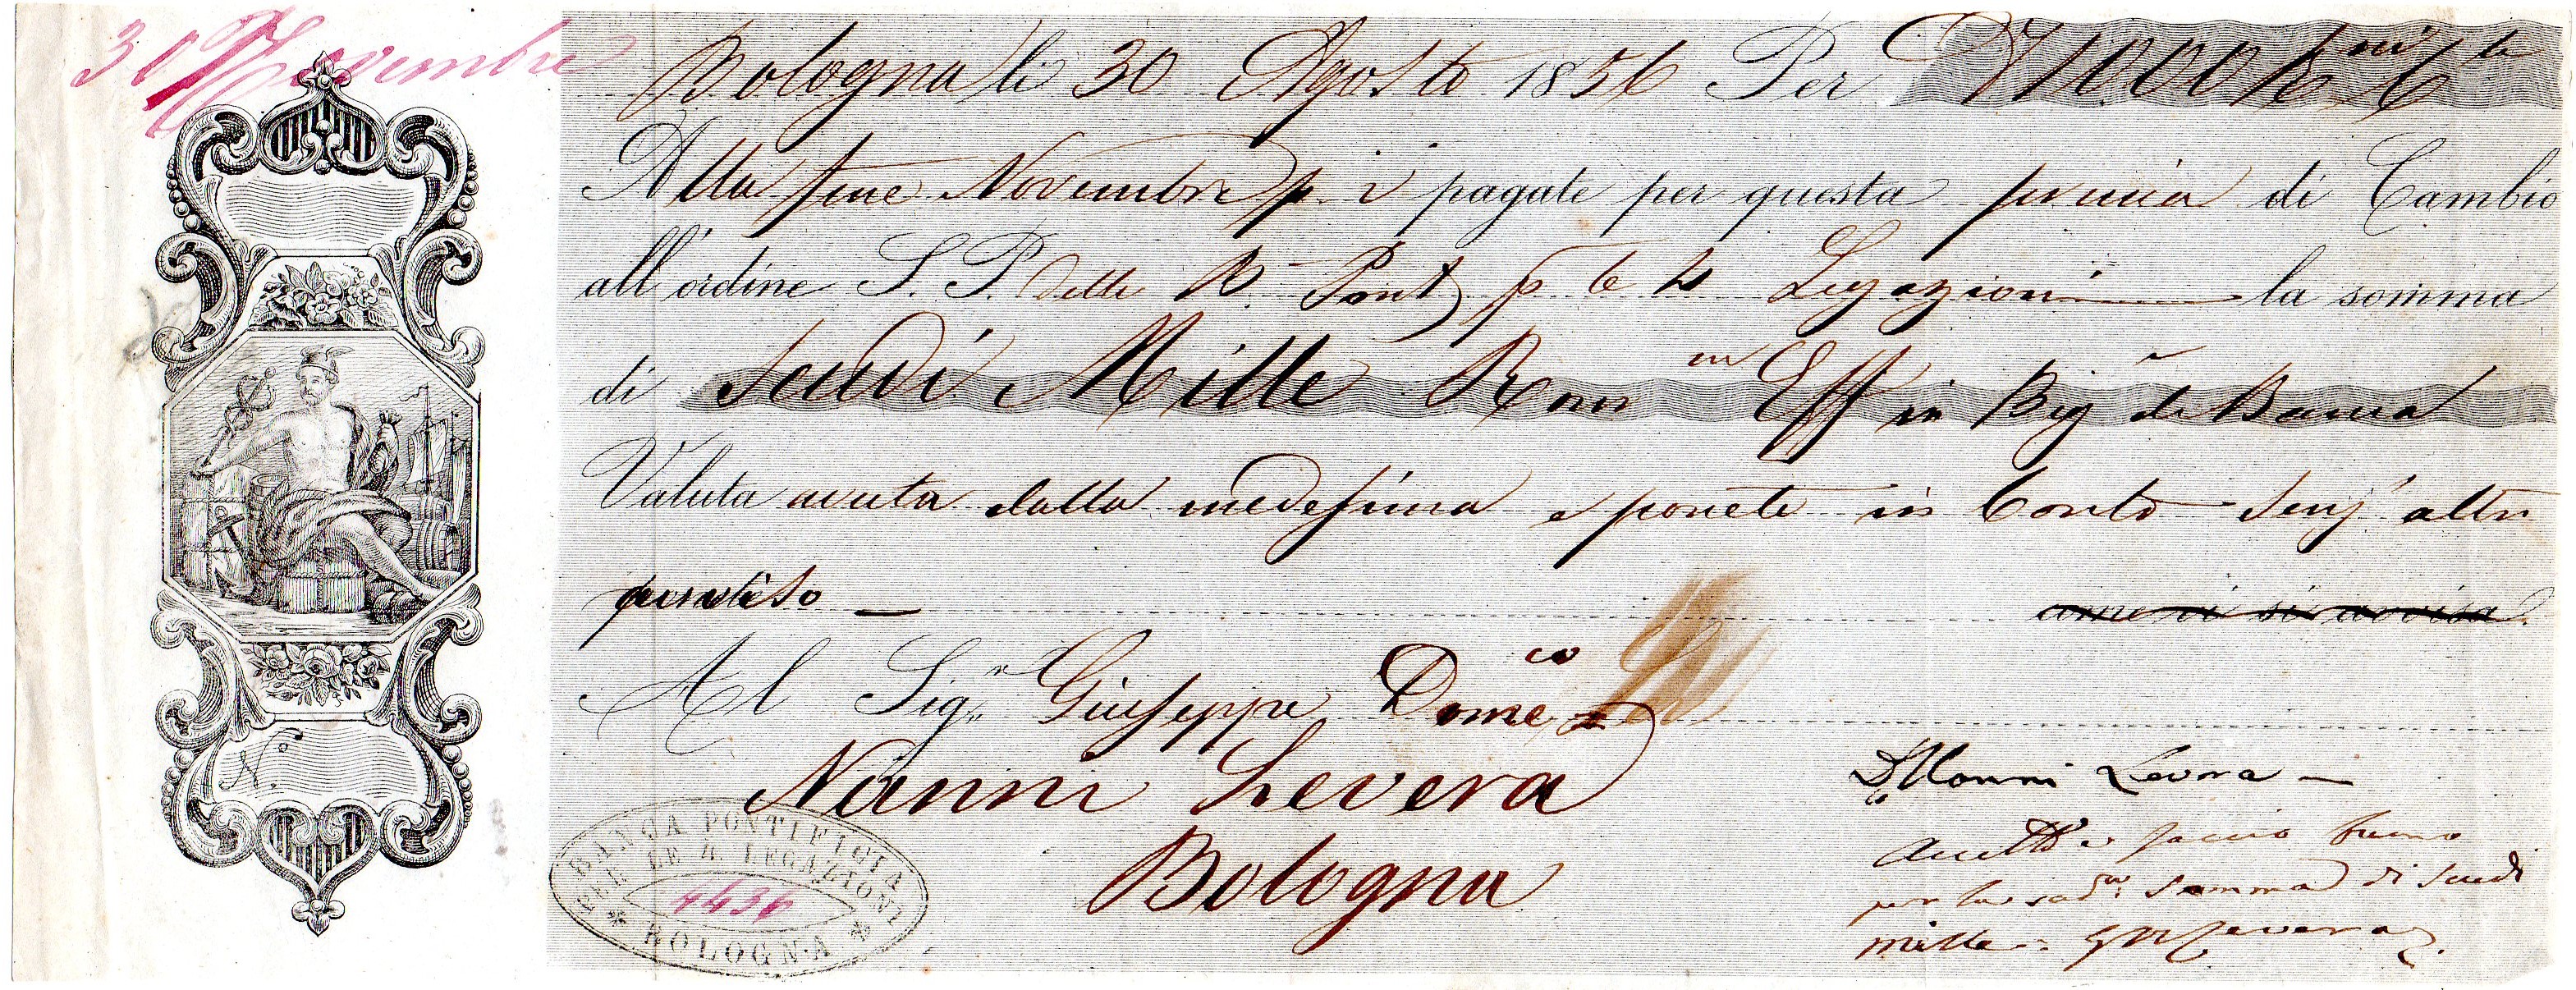 30 Novembre
Bologna li 30 Agosto 1856 Per 1000
Alla fine Novembre p. v. pagate per questa prima di Cambio
all'ordine S. P. della B. Pont p le 4 Legazioni la somma
di Scudi Mille Rom in Eff in Big di Banca
Valuta avuta dalla medesima e ponete in Conto senz' altro
come vi si avvisa.
Al Sig.r Giuseppe Dom.co
Nanni Levera
Bologna
N.o
BANCA PONTIFICIA
PER LE 4 LEGAZIONI
4436
* BOLOGNA *
Nanni Levera
per la somma di Scudi
mille